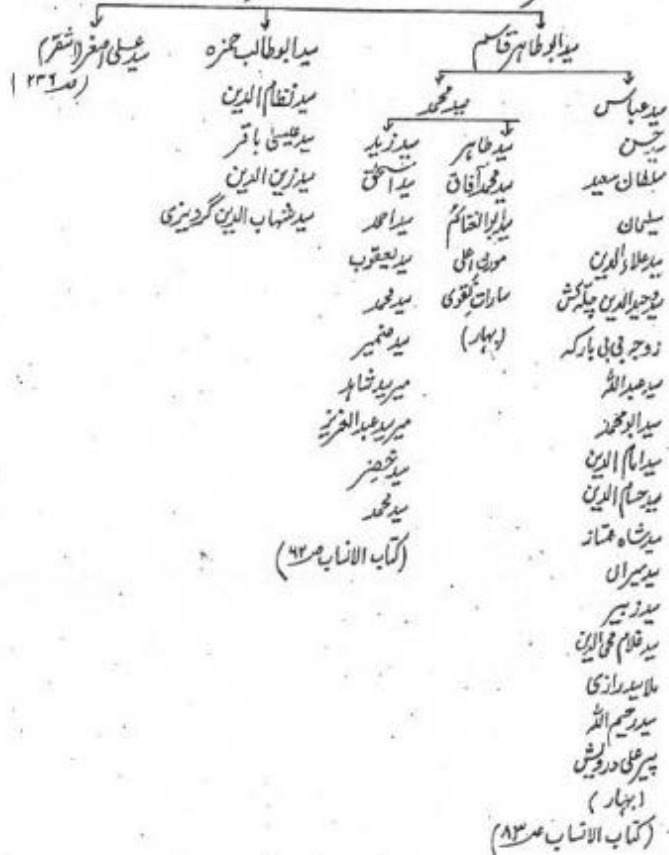 سید ابوطاہر قاسم
سید ابوطالب حمزہ
سید علی اصغر (اشقر)
(صـ ۲۳۶)
سید عباس
سید حسن
سلطان سعید
سلیمان
سید علاءالدین
وحیدالدین چلہ کش
زوجہ بی بی بارکہ
سید عبداللہ
سید ابومحمد
سید امام الدین
سید حسام الدین
سید شاہ ممتاز
سید میراں
سید زبیر
سید غلام محی الدین
ملا سید رازی
سید رحیم اللہ
پیر علی درویش
(بہار)
(کتاب الانساب صـ ۸۳)
سید محمد
سید طاہر
سید محمد آفاق
سید ابوالقاسم
مورث اعلی
سادات نقوی
(بہار)
سید زید
سید اسحق
سید احمد
سید یعقوب
سید محمد
سید ضمیر
میر سید شاہد
میر سید عبدالعزیز
سید خضر
سید محمد
(کتاب الانساب صـ ۶۲)
سید نظام الدین
سید عیسیٰ باقر
سید زین الدین
سید شہاب الدین گردیزی